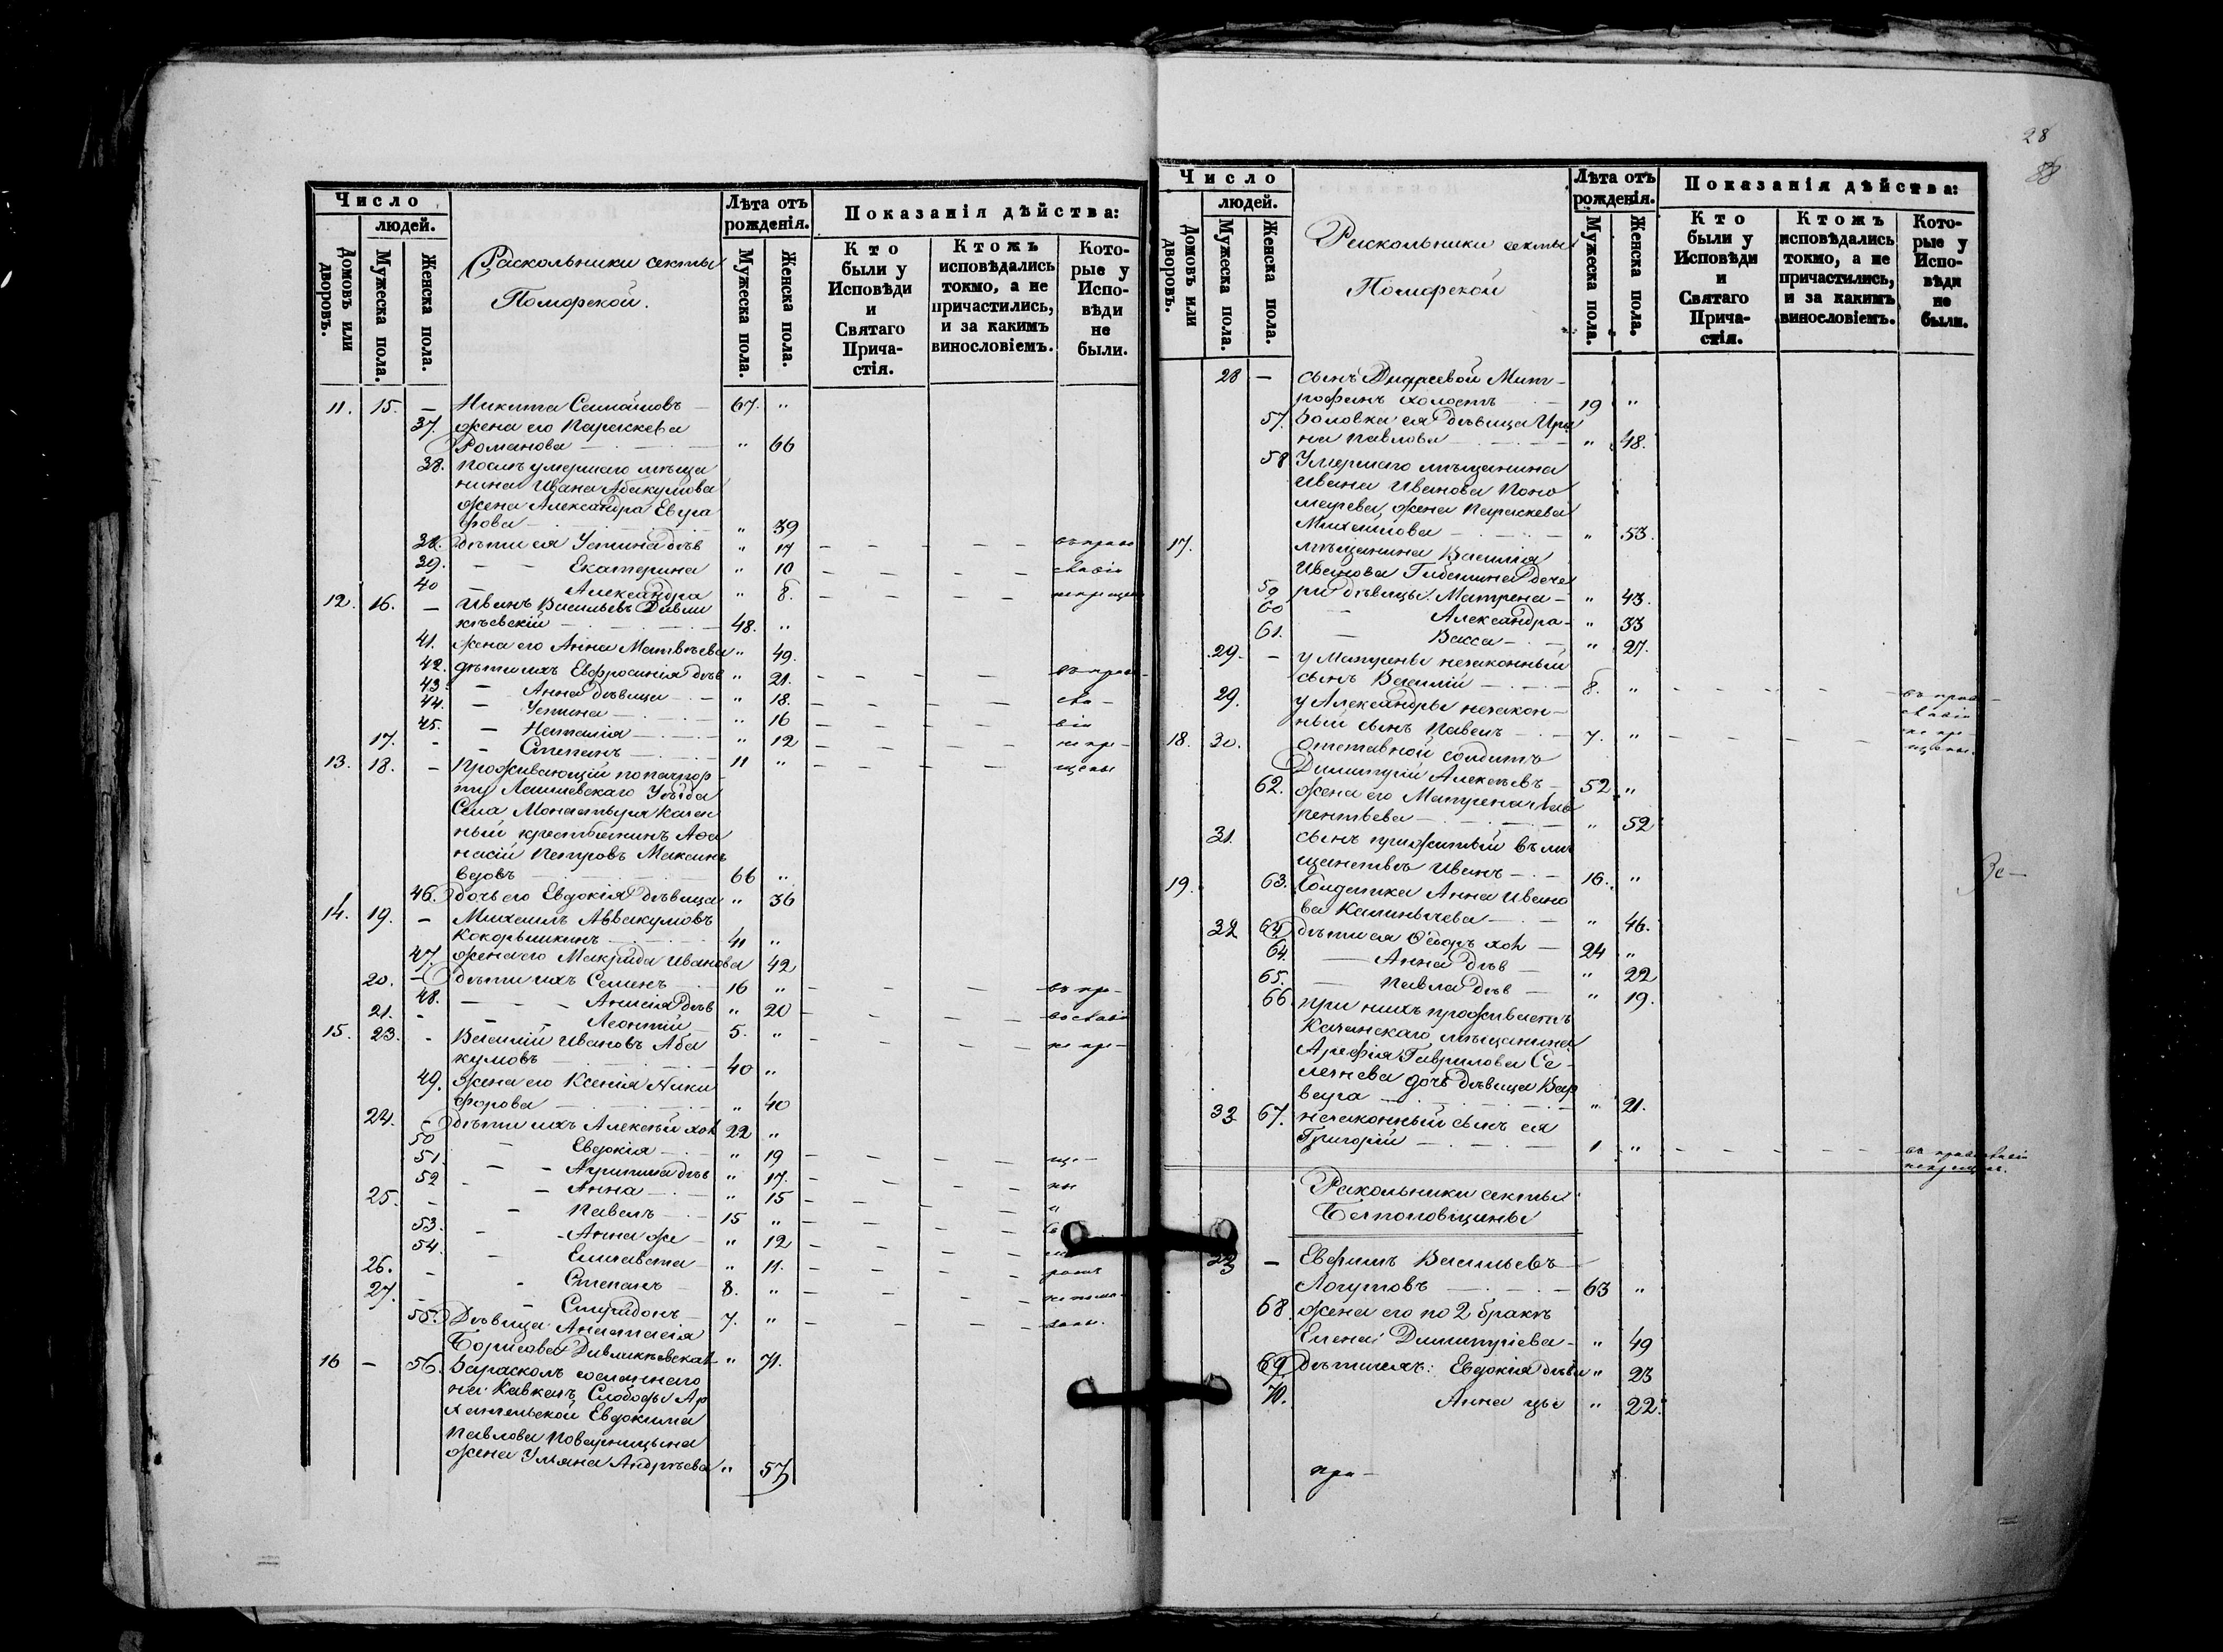 Число
людей.
Домовъ или дворовъ.
Мужеска пола.
Женска пола.
Раскольники секты
Поморской.
Лѣта отъ рожденія.
Мужеска пола.
Женска пола.
Показанія дѣйства:
Кто были у Исповѣди и Святаго Причастія.
Ктожъ исповѣдались токмо, а не причастились, и за какимъ винословіемъ.
Которые у Исповѣди не были.
11. 15. — Никита Самойловъ — 67. "
37. жена его Параскева
Романова — " 66
38. послѣ умершаго мѣща
нина Ивана Абакумова
жена Александра Евгра
фова — " 39
38. дѣти ея Устина дѣв " 17 — — — — — въ право
39. — — Екатерина " 10 — — — — — славіи
40 — Александра " 8. — — — — —
12. 16. — Иванъ Васильевъ Дивли
кѣевскій — 48. "
41. жена его Анна Матвѣева " 49.
42. дѣти ихъ Евфросинія дѣв " 21. — — — — въ право
43. — Анна дѣвица — " 18. — — — — сла —
44. — Устина — " 16 — — — — віи
45. — Наталія — " 12 — — — — не кре —
17. - - Степанъ — 11 " — — — — щены
13. 18. — Проживающій по пачпор
ту Лаишевскаго Уѣзда
Села Монастыря казен
ный крестьянинъ Афа
насій Петровъ Максинъ
вдовъ — 66 "
46. дочь его Евдокія дѣвица " 36
14. 19. — Михаилъ Аввакумовъ
Кокорышкинъ — 41 "
47. жена его Макрида Иванова 42
20. — дѣти ихъ Семенъ 16 " — — — въ пра —
48. — - - Анисія дѣв " 20 — — — — вославіи
21. - - - Леонтій — 5. " — — — — не кре —
15. 23. - Василій Ивановъ Аба
кумовъ — 40 "
49. жена его Ксенія Ники
форова — " 40
24. - дѣти ихъ Алексѣй хол 22 "
50 - Евдокія — " 19 — — — — ще —
51. - - Агрипина дѣв " 17. — — — — ны
52 - - Анна — " 15 — — — — и
25. - - Павелъ — 15 " — — — —
53. - - Анна же — " 12 — — — —
54. - Елисавета — " 11. — — — —
26. - - Степанъ 8. " — — — —
27. - - Спиридонъ — 7. " — — — —
55. Дѣвица Анастасія
Борисова Дивликѣевская " 71.
16 — 56. За расколъ сосланнаго
на Кавказъ Слободы Ар
хангельской Евдокима
Павлова Поварницына
жена Ульяна Андреева " 57
28
Число
людей.
Домовъ или дворовъ.
Мужеска пола.
Женска пола.
Раскольники секты
Поморской
Лѣта отъ рожденія.
Мужеска пола.
Женска пола.
Показанія дѣйства:
Кто были у Исповѣди и Святаго Причастія.
Ктожъ исповѣдались токмо, а не причастились, и за какимъ винословіемъ.
Которые у Исповѣди не были.
28 — сынъ Андреевой Мит —
рофанъ холостъ — 19 "
57. Золовка ея дѣвица Ири
на Павлова — " 48.
58 Умершаго мѣщанина
Ивана Иванова Поно
марева, жена Параскева
Михаилова — " 53.
17. мѣщанина Василія
Иванова Губанина доче
59 ри дѣвицы: Матрена — " 43.
60 — Александра — " 33
61. — Васса — " 27.
29. — у Матрены незаконный
сынъ Василій — 8. " - - - — — въ право
29. у Александры незакон —
ный сынъ Павелъ — 7. " - - - — —
18. 30. отставной солдатъ
Димитрій Алексѣевъ — 52 "
62. жена его Матрена Лав
рентьева — " 52
31. сынъ прижитый въ мѣ
щанствѣ Иванъ — 16. "
19. 63. Солдатка Анна Ивано
ва Калинычева — " 46.
32 64 дѣти ея Ѳеодоръ хол — 24 "
64. — Анна дѣв — " 22
65. — Павла дѣв — " 19.
66. при нихъ проживаетъ
Казанскаго мѣщанина
Арефія Гаврилова Се —
дочь дѣвица Вар
вара — " 21.
33 67. незаконный сынъ ея
Григорій — 1 " - - - — — въ православіи
некрещен.
Раскольники секты
Безпоповщины
23 — Евфимъ Васильевъ —
Логутовъ — 63 "
68. жена его по 2 бракѣ
Елена Димитріева — " 49
69 дѣти ихъ: Евдокія дѣви " 23
70. Анна цы " 22.
при —
Зе —